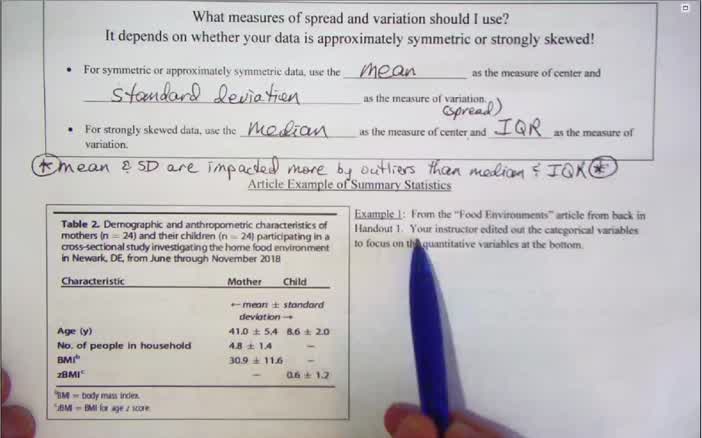 What measures of spread and variation should I use?
It depends on whether your data is approximately symmetric or strongly skewed!
• For symmetric or approximately symmetric data, use the mean as the measure of center and
standard deviation as the measure of variation.
(spread)
• For strongly skewed data, use the median as the measure of center and IQR as the measure of
variation.
* mean & SD are impacted more by outliers than median & IQR *
Article Example of Summary Statistics
Table 2. Demographic and anthropometric characteristics of
mothers (n = 24) and their children (n = 24) participating in a
cross-sectional study investigating the home food environment
in Newark, DE, from June through November 2018
Characteristic Mother Child
←mean ± standard
deviation→
Age (y) 41.0 ± 5.4 8.6 ± 2.0
No. of people in household 4.8 ± 1.4 –
BMIb 30.9 ± 11.6 –
zBMIc – 0.6 ± 1.2
bBMI = body mass index.
czBMI = BMI for age z score.
Example 1: From the “Food Environments” article from back in
Handout 1. Your instructor edited out the categorical variables
to focus on the quantitative variables at the bottom.